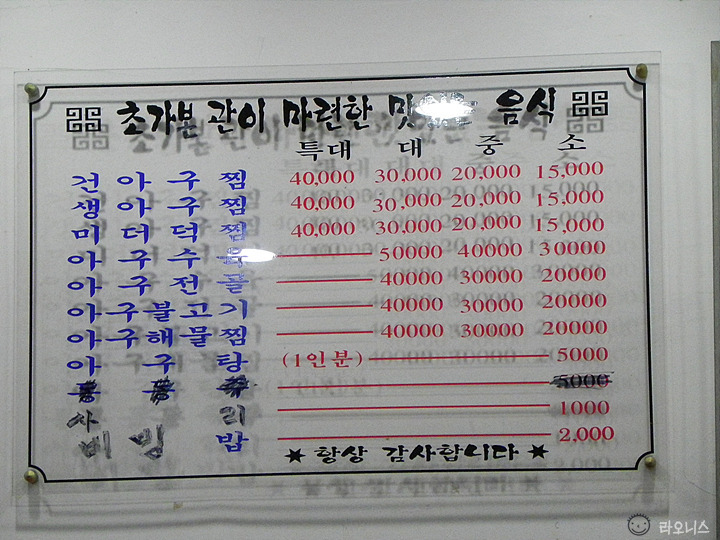 초가본 관이 마련한 음식
특대 대 중 소
건아구찜 40,000 30,000 20,000 15,000
생아구찜 40,000 30,000 20,000 15,000
미더덕찜 40,000 30,000 20,000 15,000
아구수육 50000 40000 30000
아구전골 40000 30000 20000
아구불고기 40000 30000 20000
아구해물찜 40000 30000 20000
아구탕 (1인분) 5000
5000
사리 1000
비빔밥 2,000
★ 항상 감사합니다 ★
라오니스